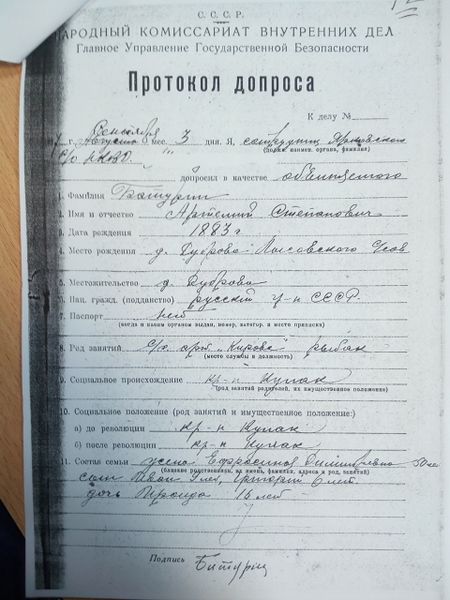 С. С. С. Р.
НАРОДНЫЙ КОМИССАРИАТ ВНУТРЕННИХ ДЕЛ
Главное Управление Государственной Безопасности
Протокол допроса
К делу №
г. сентября мес. 3 дня. Я, сотрудник
(должн. наимен. органа, фамилия)
р/о НКВД.
допросил в качестве обвиняемого
1. Фамилия Батурин
2. Имя и отчество Артемий Степанович
3. Дата рождения 1883 г
4. Место рождения д. Дуброва
5. Местожительство д. Дуброва
6. Нац. гражд. (подданство) русский гр-н СССР.
7. Паспорт нет
(когда и каким органом выдан, номер, категор. и место приписки)
8. Род занятий С/х арт. „Кирова" рыбак
(место службы и должность)
9. Социальное происхождение кр-н кулак
(род занятий родителей, их имущественное положение)
10. Социальное положение (род занятий и имущественное положение:)
а) до революции кр-н кулак
б) после революции кр-н кулак
11. Состав семьи жена Ефросинья Дмитриевна 50 лет
(близкие родственники, их имена, фамилии, адреса и род занятий)
сын Иван лет, Григорий 6 лет
дочь 16 лет
Подпись Батурин